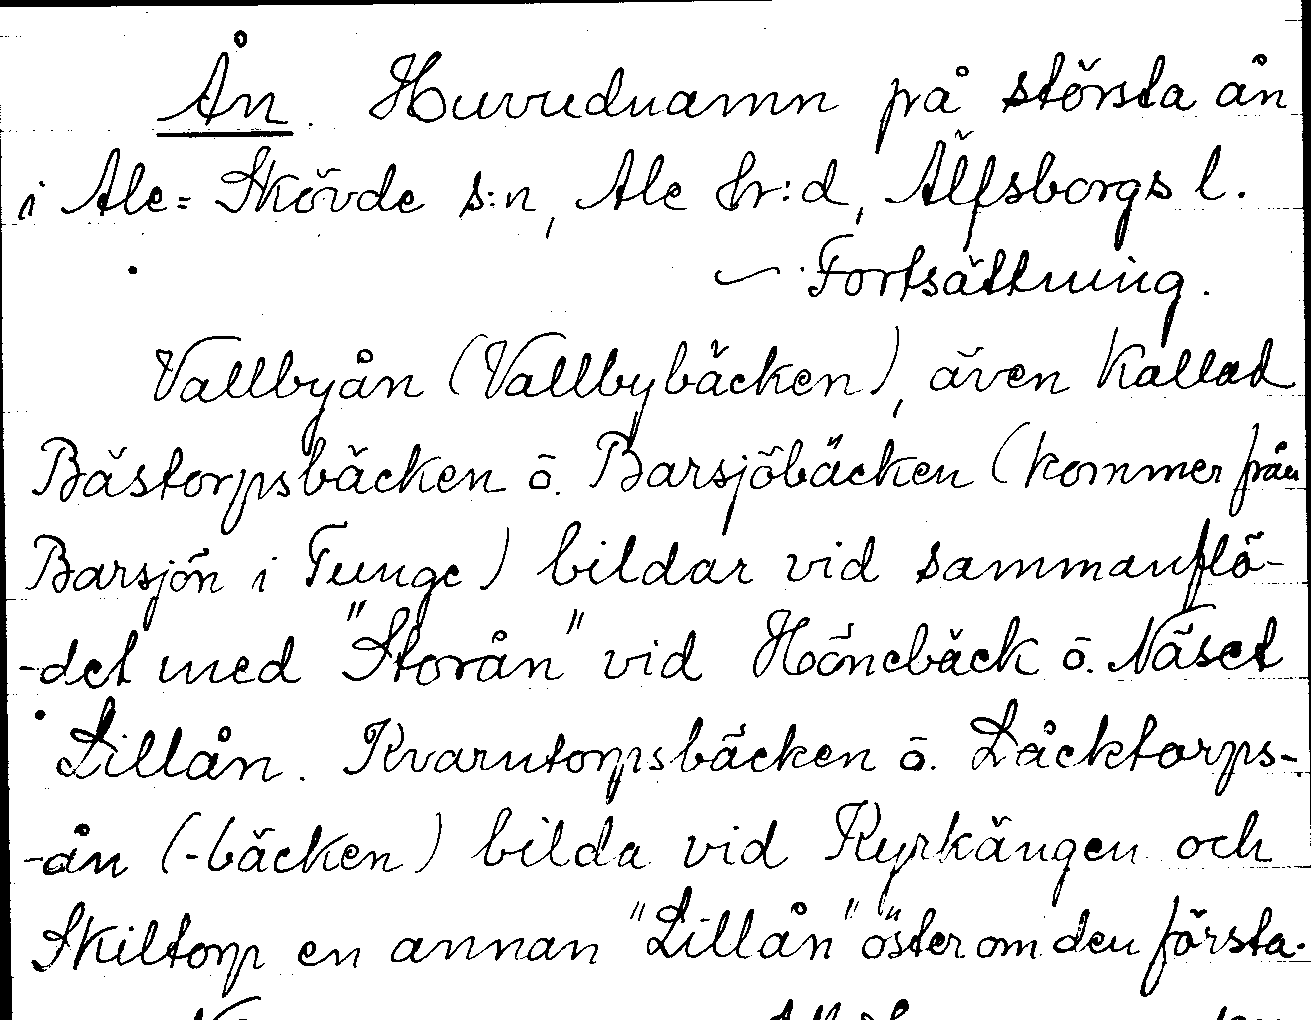 Ån. Huvudnamn på största ån
i Ale=Skövde s:n, Ale hr:d, Älfsborgs l.
Fortsättning.
Vallbyån (Vallbybäcken), även kallad
Bästorpsbäcken ö. Barsjöbäcken (kommer från
Barsjön i Tunge) bildar vid sammanflö-
-det med "Storån" vid Hönebäck ö. Näset
Lillån. Kvarntorpsbäcken ö. Låcktorps-
-ån (-bäcken) bilda vid Kyrkängen och
Skiltorp en annan "Lillån" öster om den första.